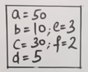 a=50
b=10; e=3
c=30; f=2
d=5